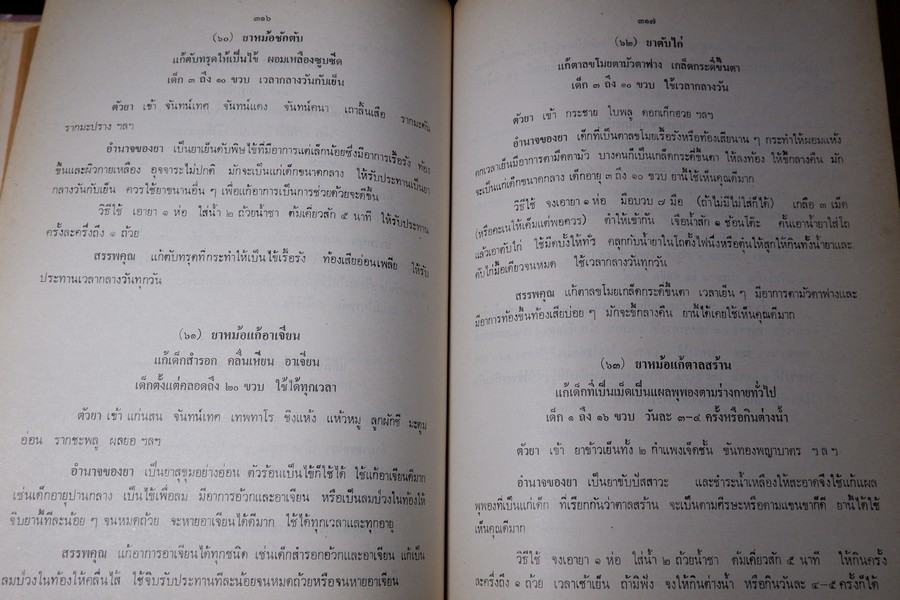 ๓๑๖
(๖๐) ยาหม้อชักตับ
แก้ตับทรุดให้เป็นไข้ ผอมเหลืองซูบซีด
เด็ก ๓ ถึง ๑๐ ขวบ เวลากลางวันกับเย็น
ตัวยา เข้า จันทน์เทศ จันทน์แดง จันทน์คนา เถาลิ้นเสือ รากมะตูม
รากมะปราง ฯลฯ
อำนาจของยา เป็นยาเย็นดับพิษไข้ที่มีอาการแต่เล็กน้อยซึ่งมีอาการเรื้อรัง ท้อง
ขึ้นและผิวกายเหลือง อุจจาระไม่ปกติ มักจะเป็นแก่เด็กขนาดกลาง ให้รับประทานเป็นยา
กลางวันกับเย็น ควรใช้ยาขนานอื่น ๆ เพื่อแก้อาการเป็นการช่วยด้วยจะดีขึ้น
วิธีใช้ เอายา ๑ ห่อ ใส่น้ำ ๒ ถ้วยน้ำชา ต้มเคี่ยวสัก ๕ นาที ให้รับประทาน
ครั้งละครึ่งถึง ๑ ถ้วย
สรรพคุณ แก้ตับทรุดที่กระทำให้เป็นไข้เรื้อรัง ท้องเสียอ่อนเพลีย ให้รับ
ประทานเวลากลางวันทุกวัน
(๖๑) ยาหม้อแก้อาเจียน
แก้เด็กสำรอก คลื่นเหียน อาเจียน
เด็กตั้งแต่คลอดถึง ๒๐ ขวบ ใช้ได้ทุกเวลา
ตัวยา เข้า แก่นสน จันทน์เทศ เทพทาโร ขิงแห้ง แห้วหมู ลูกผักชี มะตูม
อ่อน รากชะพลู ผลยอ ฯลฯ
อำนาจของยา เป็นยาสุขุมอย่างอ่อน ตัวร้อนเป็นไข้ก็ใช้ได้ ใช้แก้อาเจียนดีมาก
เช่นเด็กอายุปานกลาง เป็นไข้เพื่อลม มีอาการอ้วกและอาเจียน หรือเป็นลมบ่วงในท้องให้
จิบยานี้ทีละน้อย ๆ จนหมดถ้วย จะหายอาเจียนได้ดีมาก ใช้ได้ทุกเวลาและทุกอายุ
สรรพคุณ แก้อาการอาเจียนได้ทุกชนิด เช่นเด็กสำรอกอ้วกและอาเจียน แก้เป็น
ลมบ่วงในท้องให้คลื่นไส้ ใช้จิบรับประทานทีละน้อยจนหมดถ้วยหรือจนหายอาเจียน
๓๑๗
(๖๒) ยาตับไก่
แก้ตาลขโมยตามัวตาฟาง เกล็ดกระดี่ขึ้นตา
เด็ก ๓ ถึง ๑๐ ขวบ ใช้เวลากลางวัน
ตัวยา เข้า กระชาย ใบพลู ดอกเก็กฮวย ฯลฯ
อำนาจของยา เด็กที่เป็นตาลขโมยเรื้อรังหรือท้องเสียนาน ๆ กระทำให้ผอมแห้ง
ตกเวลาเย็นมีอาการตามืดตามัว บางคนก็เป็นเกล็ดกระดี่ขึ้นตา ให้ลงท้อง ให้ขี้กลางคืน มัก
จะเป็นแก่เด็กขนาดกลาง เด็กอายุ ๓ ถึง ๑๐ ขวบ ยานี้ใช้เห็นคุณดีมาก
วิธีใช้ จงเอายา ๑ ห่อ มือบวบ ๗ มือ (ถ้าไม่มีไม่ใส่ก็ได้) เกลือ ๓ เม็ด
(หรือคะเนให้เค็มแต่พอควร) ตำให้เข้ากัน เจือน้ำสัก ๑ ช้อนโต๊ะ คั้นเอาน้ำยาใส่โถ
แล้วเอาตับไก่ ใช้มีดบั้งให้ทั่ว คลุกกับน้ำยาในโถตั้งไฟนึ่งหรือตุ๋นให้สุกให้กินทั้งน้ำยาและ
ตับไก่มื้อเดียวจนหมด ใช้เวลากลางวันทุกวัน
สรรพคุณ แก้ตาลขโมยเกล็ดกระดี่ขึ้นตา เวลาเย็น ๆ มีอาการตามัวตาฟางและ
มีอาการท้องขึ้นท้องเสียบ่อย ๆ มักจะขี้กลางคืน ยานี้ได้เคยใช้เห็นคุณดีมาก
(๖๓) ยาหม้อแก้ตาลสร้าน
แก้เด็กที่เป็นเม็ดเป็นแผลพุพองตามร่างกายทั่วไป
เด็ก ๑ ถึง ๑๖ ขวบ วันละ ๓-๔ ครั้งหรือกินต่างน้ำ
ตัวยา เข้า ยาข้าวเย็นทั้ง ๒ กำแพงเจ็ดชั้น ขันทองพญาบาตร ฯ ล ฯ
อำนาจของยา เป็นยาขับปัสสาวะ และชำระน้ำเหลืองให้สะอาดจึงใช้แก้แผล
พุพองที่เป็นแก่เด็ก ที่เรียกกันว่าตาลสร้าน จะเป็นตามศีรษะหรือตามแขนขาก็ดี ยานี้ได้ใช้
เห็นคุณดีมาก
วิธีใช้ จงเอายา ๑ ห่อ ใส่น้ำ ๒ ถ้วยน้ำชา ต้มเคี่ยวสัก ๕ นาที ให้กินครั้ง
ละครึ่งถึง ๑ ถ้วย เวลาเช้าเย็น ถ้ามิฟัง จงให้กินต่างน้ำ หรือกินวันละ ๔-๕ ครั้งก็ได้